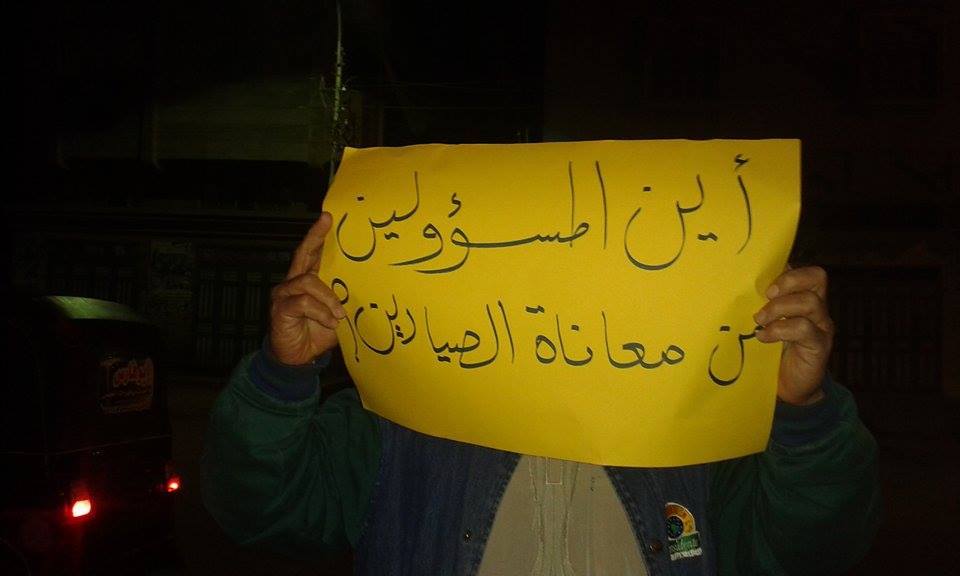 أين المسؤولين
من معاناة الصيادين؟